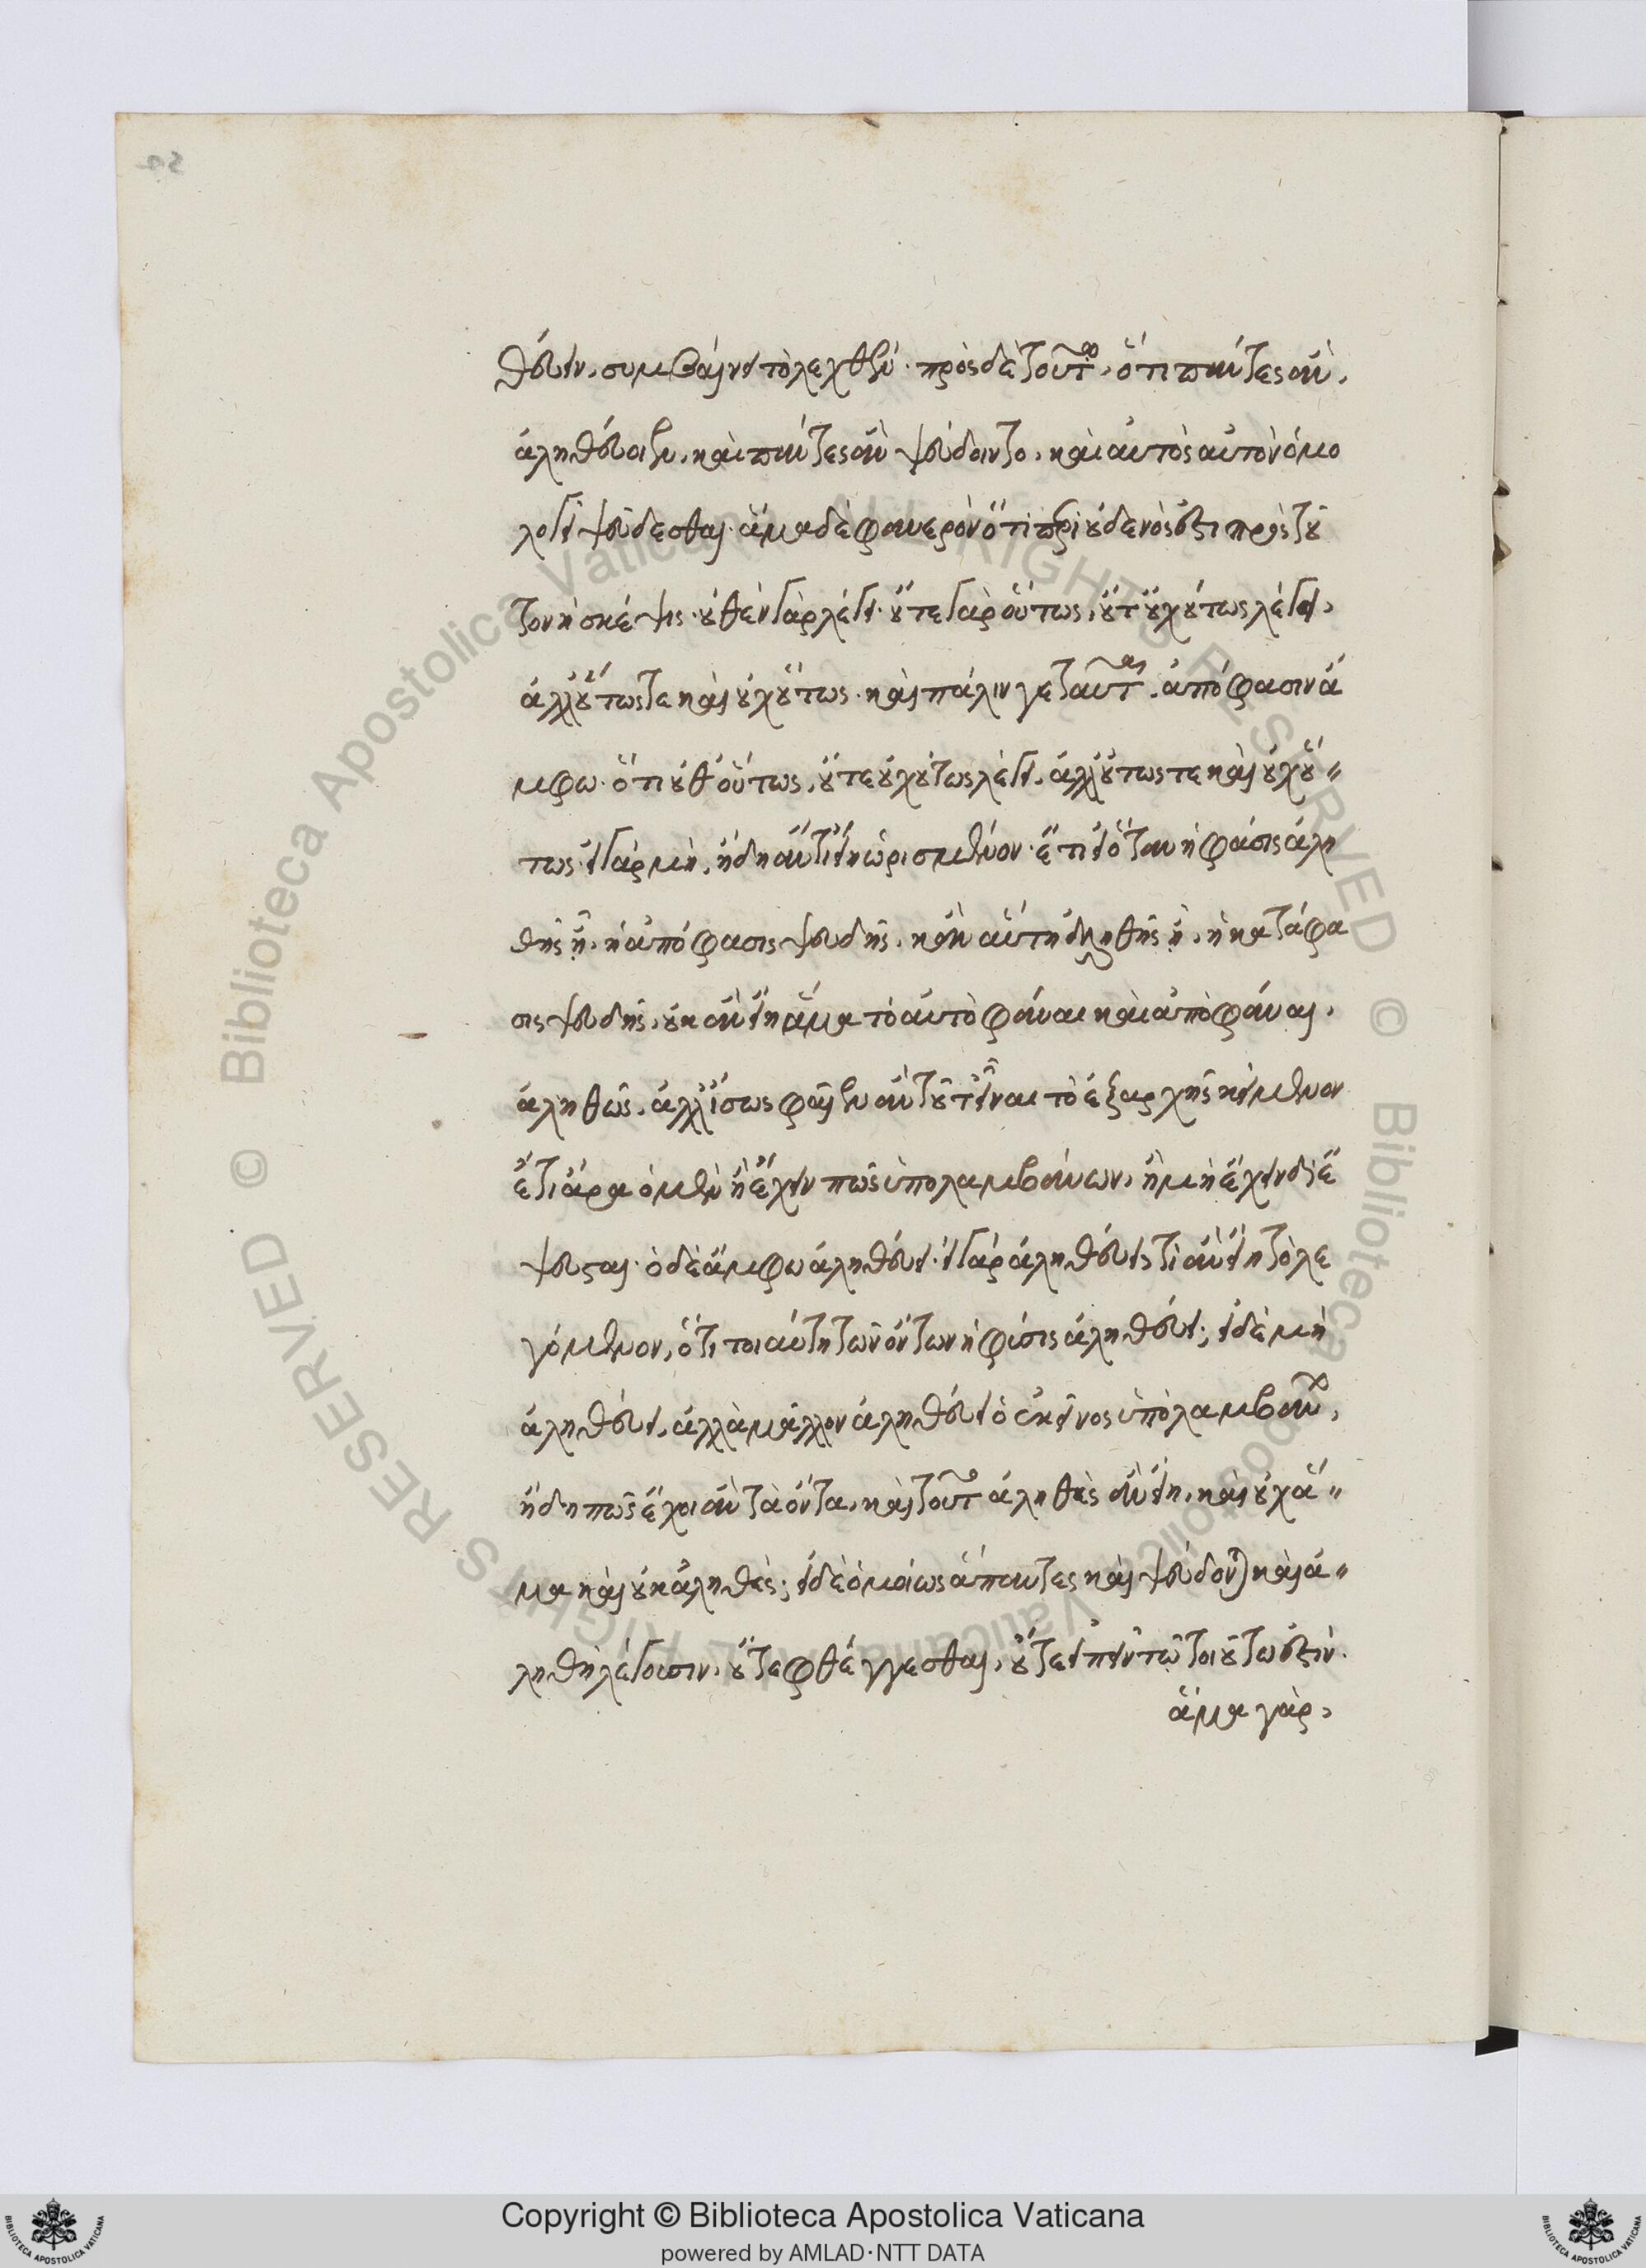 θεύειν, συμβαίνει τὸ λεχθὲν· πρὸς δὲ τούτοις, ὅτι πάντες ἂν,
ἀληθεύοιεν, καὶ πάντες ἂν ψεύδοιντο, καὶ αὐτὸς αὐτὸν ὁμο
λογεῖ ψεύδεσθαι· ἅμα δὲ φανερὸν ὅτι περὶ οὐδενός ἐστι πρὸς τοῦ
τον ἡ σκέψις· οὐθὲν γὰρ λέγει· οὔτε γὰρ οὕτως, οὔτ' οὐχ οὕτως λέγει,
ἀλλ' οὕτως τε καὶ οὐχ οὕτως· καὶ πάλιν γε ταῦτα, ἀπόφασιν ἄ
μφω· ὅτι οὔθ' οὕτως, οὔτε οὐχ οὕτως λέγει, ἀλλ' οὕτως τε καὶ οὐχ οὕ"
τως· εἰ γὰρ μὴ, ἤδη ἄν τι εἴη ὡρισμένον· ἔτι εἰ ὅταν ἡ φάσις ἀλη
θὴς ᾖ, ἡ ἀπόφασις ψευδὴς, κἂν αὕτη ἀληθὴς ᾖ, ἡ κατάφα
σις ψευδὴς, οὐκ ἂν εἴη ἅμα τὸ αὐτὸ φάναι καὶ ἀποφάναι,
ἀληθῶς, ἀλλ' ἴσως φαῖεν ἂν τοῦτ' εἶναι τὸ ἐξαρχῆς κείμενον
ἔτι ἄρα ὁ μὲν ἢ ἔχειν πῶς ὑπολαμβάνων, ἢ μὴ ἔχειν διέ
ψευσται· ὁ δὲ ἄμφω ἀληθεύει· εἰ γὰρ ἀληθεύει τί ἂν εἴη τὸ λε
γόμενον, ὅτι τοιαύτη τῶν ὄντων ἡ φύσις ἀληθεύει; εἰ δὲ μὴ
ἀληθεύει, ἀλλὰ μᾶλλον ἀληθεύει ὁ ἐκείνως ὑπολαμβάνων,
ἤδη πῶς ἔχοι ἂν τὰ ὄντα, καὶ τοῦτο ἀληθὲς ἂν εἴη, καὶ οὐχ ἅ"
μα καὶ οὐκ ἀληθές; εἰ δὲ ὁμοίως ἅπαντες καὶ ψεύδονται καὶ ἀ"
ληθῆ λέγουσιν, οὔτε φθέγγεσθαι, οὔτε εἰπεῖν τῷ τοιούτῳ ἐστίν.
ἅμα γὰρ,
Copyright © Biblioteca Apostolica Vaticana
powered by AMLAD·NTT DATA